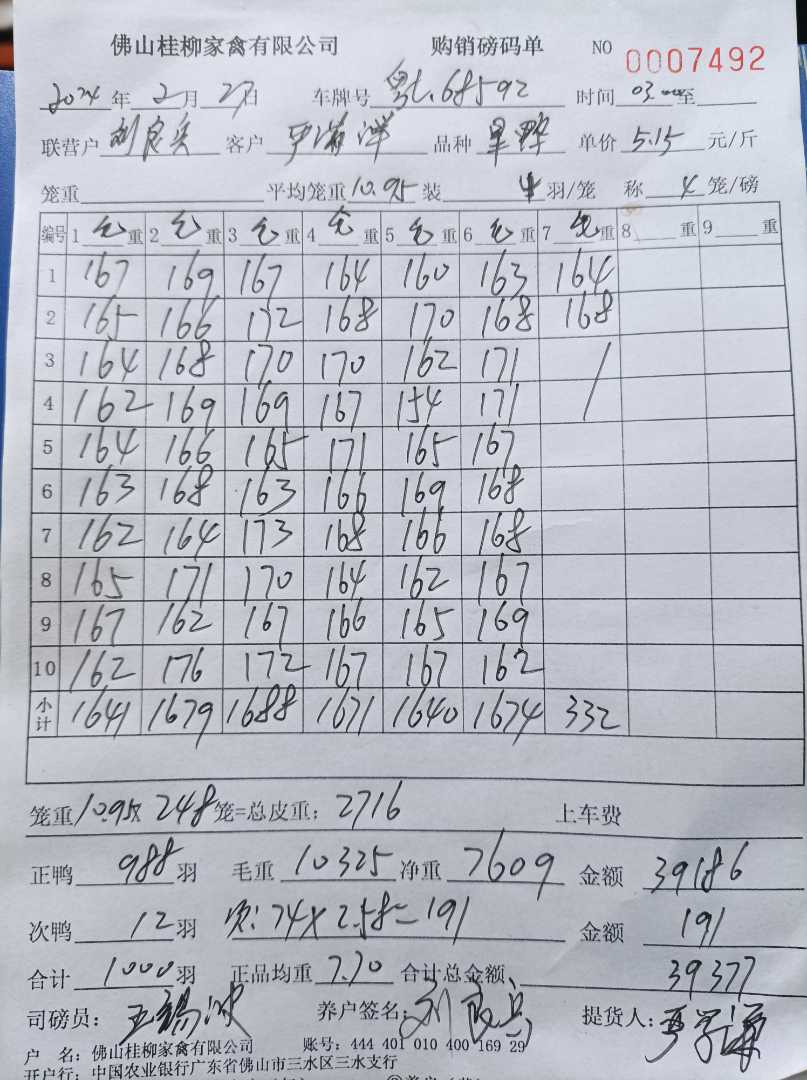 佛山桂柳家禽有限公司 购销磅码单 NO 0007492
2024年2月27日 车牌号 粤L.68592 时间 03.00至
联营户 刘良兵 客户 品种 单价 5.15 元/斤
笼重 平均笼重 10.95 装 4 羽/笼 称 4 笼/磅
编号 1 毛重 2 毛重 3 毛重 4 毛重 5 毛重 6 毛重 7 毛重 8 重 9 重
1 167 169 167 164 160 163 164
2 165 166 172 168 170 168 168
3 164 168 170 170 162 171 /
4 162 169 169 167 154 171
5 164 166 165 171 165 167
6 163 168 163 166 169 168
7 162 164 173 168 166 168
8 165 171 170 164 162 167
9 167 162 167 166 165 169
10 162 176 172 167 167 162
小计 1641 1679 1688 1671 1640 1674 332
笼重 10.95x 248 笼=总皮重: 2716 上车费
正鸭 988 羽 毛重 10325 净重 7609 金额 39186
次鸭 12 羽 74×2.58=191 金额 191
合计 1000 羽 正品均重 7.70 合计总金额: 39377
司磅员: 养户签名: 刘良兵 提货人:
户 名: 佛山桂柳家禽有限公司 账号: 444 401 010 400 169 29
开户行: 中国农业银行广东省佛山市三水区三水支行